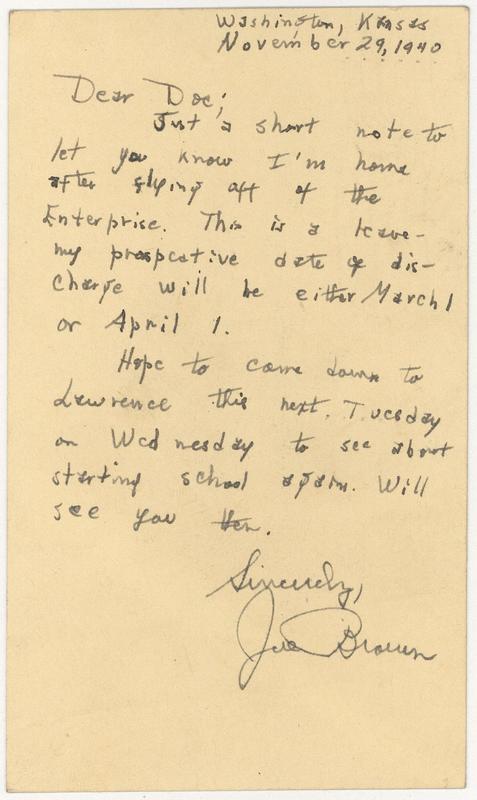 Washington, Kansas
November 29, 1940
Dear Doc;
Just a short note to
let you know I'm home
after flying off of the
Enterprise. This is a leave-
my prospcative date of dis-
charge will be either March 1
or April 1.
Hope to come down to
Lawrence this next Tuesday
or Wednesday to see about
starting school again. Will
see you then.
Sincerely,
Joe Brown